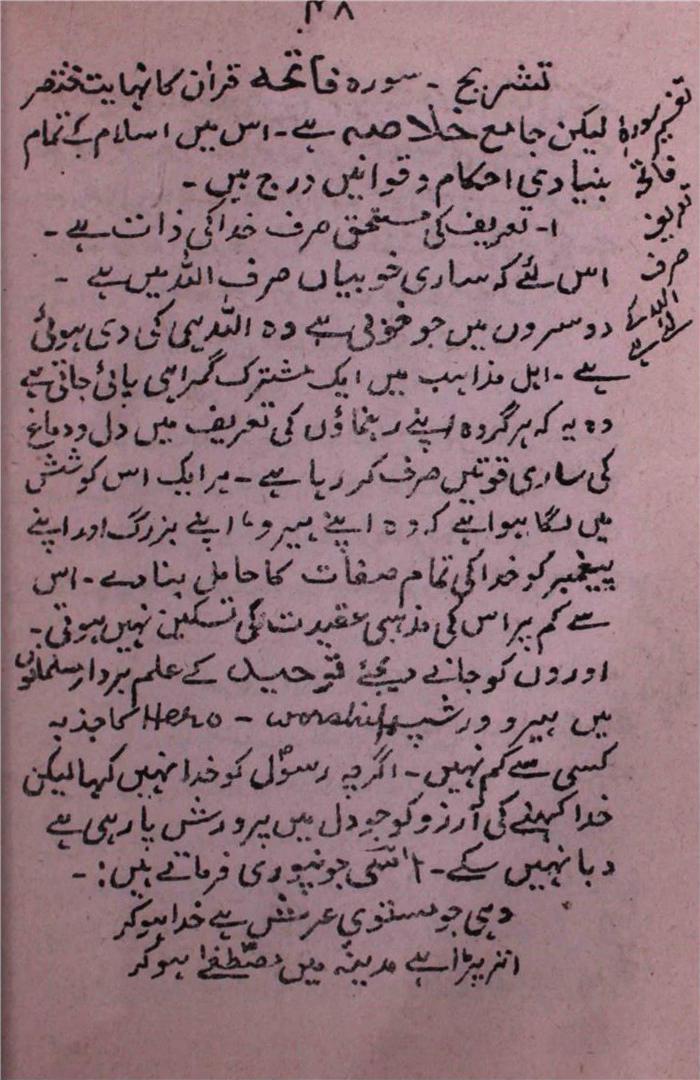 ۴۸
تشریح - سورہ فاتحہ قرآن کا نہایت مختصر
لیکن جامع خلاصہ ہے - اس میں اسلام کے تمام
بنیادی احکام و قوانین درج ہیں -
۱- تعریف کی مستحق صرف خدا کی ذات ہے -
اس لئے کہ ساری خوبیاں صرف اللہ میں ہے -
دوسروں میں جو خوبی ہے وہ اللہ ہی کی دی ہوئی
ہے - اہل مذاہب میں ایک مشترک گمراہی پائی جاتی ہے
وہ یہ کہ ہر گروہ اپنے رہنماؤں کی تعریف میں دل و دماغ
کی ساری قوتیں صرف کر رہا ہے - ہر ایک اس کوشش
میں لگا ہوا ہے کہ وہ اپنے ہیرو، اپنے بزرگ اور اپنے
پیغمبر کو خدا کی تمام صفات کا حامل بنا دے - اس
سے کم پر اس کی مذہبی عقیدت کی تسکین نہیں ہوتی -
اوروں کو جانے دیجئے توحید کے علم بردار مسلمانوں
میں ہیرو ورشپ Hero - worship کا جذبہ
کسی سے کم نہیں - اگرچہ رسولؐ کو خدا نہیں کہا لیکن
خدا کہنے کی آرزو کو جو دل میں پرورش پا رہی ہے
دبا نہیں سکے - آسی جونپوری فرماتے ہیں: -
وہی جو مستوی عرش ہے خدا ہو کر
اتر پڑا ہے مدینہ میں مصطفےٰ ہو کر
تفسیر سورۂ
فاتحہ
تعریف
صرف
اللہ کے
لئے ہے